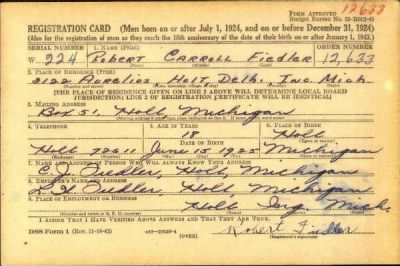 12633
Form Approved
REGISTRATION CARD (Men born on or after July 1, 1924, and on or before December 31, 1924)
(Also for the registration of men as they reach the 18th anniversary of the date of their birth on or after January 1, 1925.)
SERIAL NUMBER 1. NAME (Print) ORDER NUMBER
W 224 Robert Carroll Fiedler 12,633
2. PLACE OF RESIDENCE (Print)
2122 Aurelius Holt, Delhi, Ing. Mich
[THE PLACE OF RESIDENCE GIVEN ON LINE 2 ABOVE WILL DETERMINE LOCAL BOARD
JURISDICTION; LINE 2 OF REGISTRATION CERTIFICATE WILL BE IDENTICAL]
3. MAILING ADDRESS
Box 51, Holt Michigan
4. TELEPHONE 5. AGE IN YEARS 6. PLACE OF BIRTH
18 Holt
DATE OF BIRTH
Holt 72611 June 15 1925 Michigan
7. NAME AND ADDRESS OF PERSON WHO WILL ALWAYS KNOW YOUR ADDRESS
C. J. Fiedler, Holt, Michigan
8. EMPLOYER'S NAME AND ADDRESS
Fiedler, Holt Michigan
9. PLACE OF EMPLOYMENT OR BUSINESS
Holt Ing. Mich.
I AFFIRM THAT I HAVE VERIFIED ABOVE ANSWERS AND THAT THEY ARE TRUE.
DSS Form 1 (OVER) Robert Fiedler
(Registrant's signature)